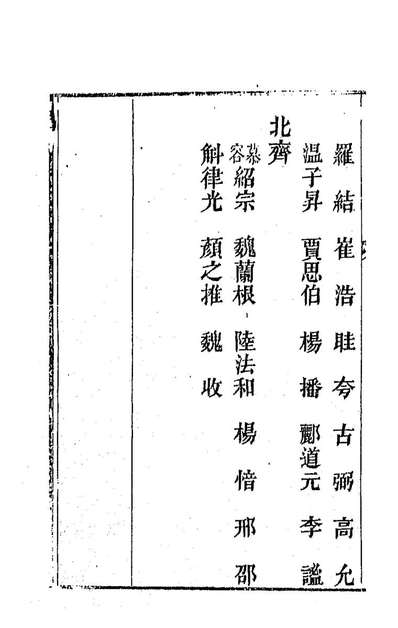 羅結 崔浩 眭夸 古弼 高允
温子昇 賈思伯 楊播 酈道元 李謐
北齊
慕容紹宗 魏蘭根 陸法和 楊愔 邢邵
斛律光 顏之推 魏收